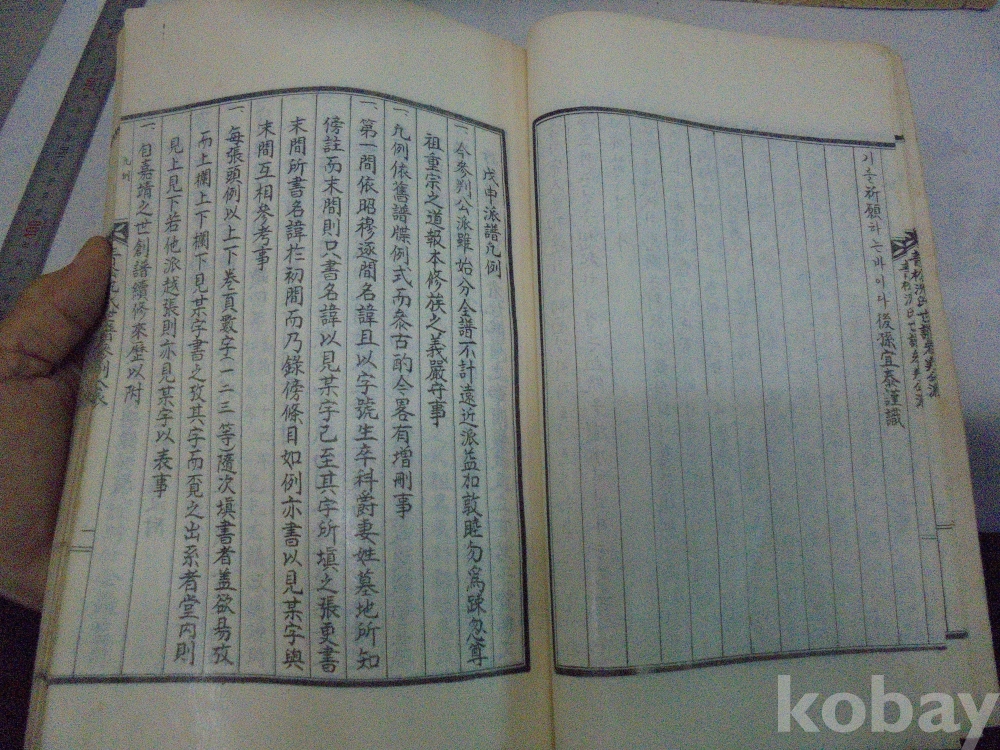 기를祈願하는바이다 後孫宜泰謹識
戊申派譜凡例
一 今參判公派雖始分全譜不計遠近派益加敦睦勿爲踈忽尊
祖重宗之道報本修族之義嚴守事
一 凡例依舊譜牒例式而叅古酌今畧有增刪事
一 第一間依昭穆逐間名諱且以字號生卒科爵妻姓墓地所知
傍註而末間則只書名諱以見某字已至其字所塡之張更書
末間所書名諱於初間而乃錄傍條目如例亦書以見某字與
末間互相參考事
一 每張頭例以上下卷頁數字(一二三)等隨次塡書者盖欲易攷
而上欄上下欄下見某字書之攷其字而覓之出系者堂內則
見上見下若他派越張則亦見某字以表事
一 自嘉靖之世創譜續修來歷以附
凡例
kobay